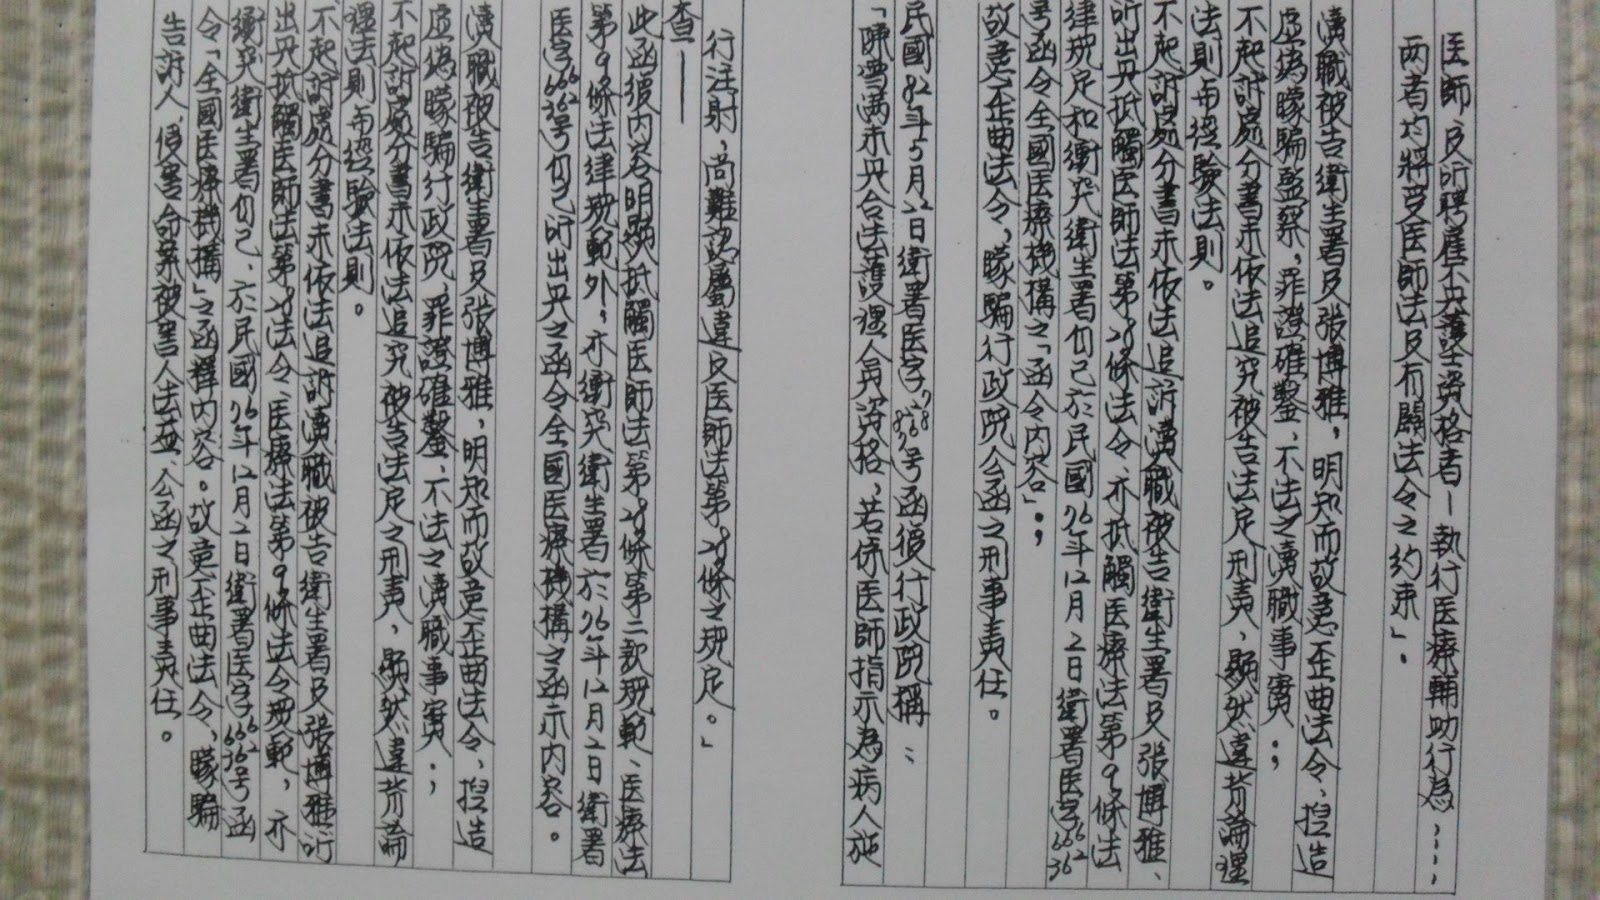 医師,及所聘雇不具護士資格者—執行医療輔助行為……
两者均將受医師法及有關法令之約束」.
瀆職被告衛生署及張博雅,明知而故意歪曲法令、捏造
虛偽矇騙監察,罪證確鑿、不法之瀆職事實;
不起訴處分書未依法追究被告法定刑責,顯然違背論理
法則与經驗法則。
不起訴處分書未依法追訴瀆職被告衛生署及張博雅、
所出具抵觸医師法第28條法令、亦抵觸医療法第9條法
律規定和衝突衛生署自己於民國76年12月2日衛署医字
号函令全國医療機構之「函令内容」;
故意歪曲法令,矇騙行政院公函之刑事責任。
民國82年5月22日衛署医字 号函復行政院稱:
「陳雪满未具合法護理人員資格,若係医師指示為病人施
行注射,尚難認屬違反医師法第28條之規定。」
查——
此函復内容明顯抵觸医師法第28條第二款規範、医療法
第9條法律規範外,亦衝突衛生署於76年12月2日衛署
医字 号自己所出具之函令全國医療機構之函示内容。
瀆職被告衛生署及張博雅,明知而故意歪曲法令、捏造
虛偽矇騙行政院,罪證確鑿、不法之瀆職事實;
不起訴處分書未依法追究被告法定之刑責,顯然違背論
理法則与經驗法則。
不起訴處分書未依法追訴瀆職被告衛生署及張博雅所
出具抵觸医師法第28法令、医療法第9條法令規範,亦
衝突衛生署自己、於民國76年12月2日衛署医字 号函
令「全國医療機構」之函釋内容。故意歪曲法令、矇騙
告訴人、侵害命案被害人法益、公函之刑事責任。